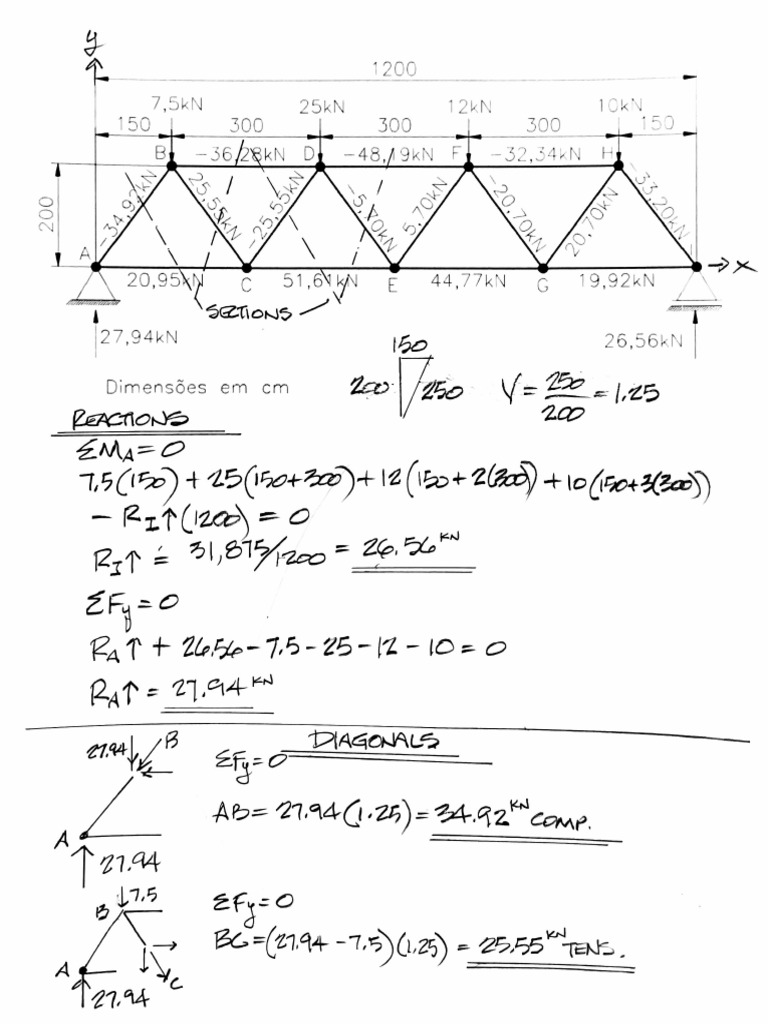 y
1200
7,5kN 25kN 12kN 10kN
150 300 300 300 150
B -36,28kN D -48,19kN F -32,34kN H
200
-34,92kN 25,55kN -25,55kN -5,70kN 5,70kN -20,70kN 20,70kN -33,20kN
A x
20,95kN C 51,61kN E 44,77kN G 19,92kN
SECTIONS
27,94kN 26,56kN
150
Dimensões em cm
200 250 V = 250/200 = 1.25
REACTIONS
ΣMA = 0
7.5(150) + 25(150+300) + 12(150+2(300)) + 10(150+3(300))
- RI↑(1200) = 0
RI↑ = 31,875/1200 = 26.56 kN
ΣFy = 0
RA↑ + 26.56 - 7.5 - 25 - 12 - 10 = 0
RA↑ = 27.94 kN
DIAGONALS
27.94 B
ΣFy = 0
AB = 27.94(1.25) = 34.92 kN COMP.
A
27.94
7.5
B
ΣFy = 0
BC = (27.94 - 7.5)(1.25) = 25.55 kN TENS.
A
C
27.94